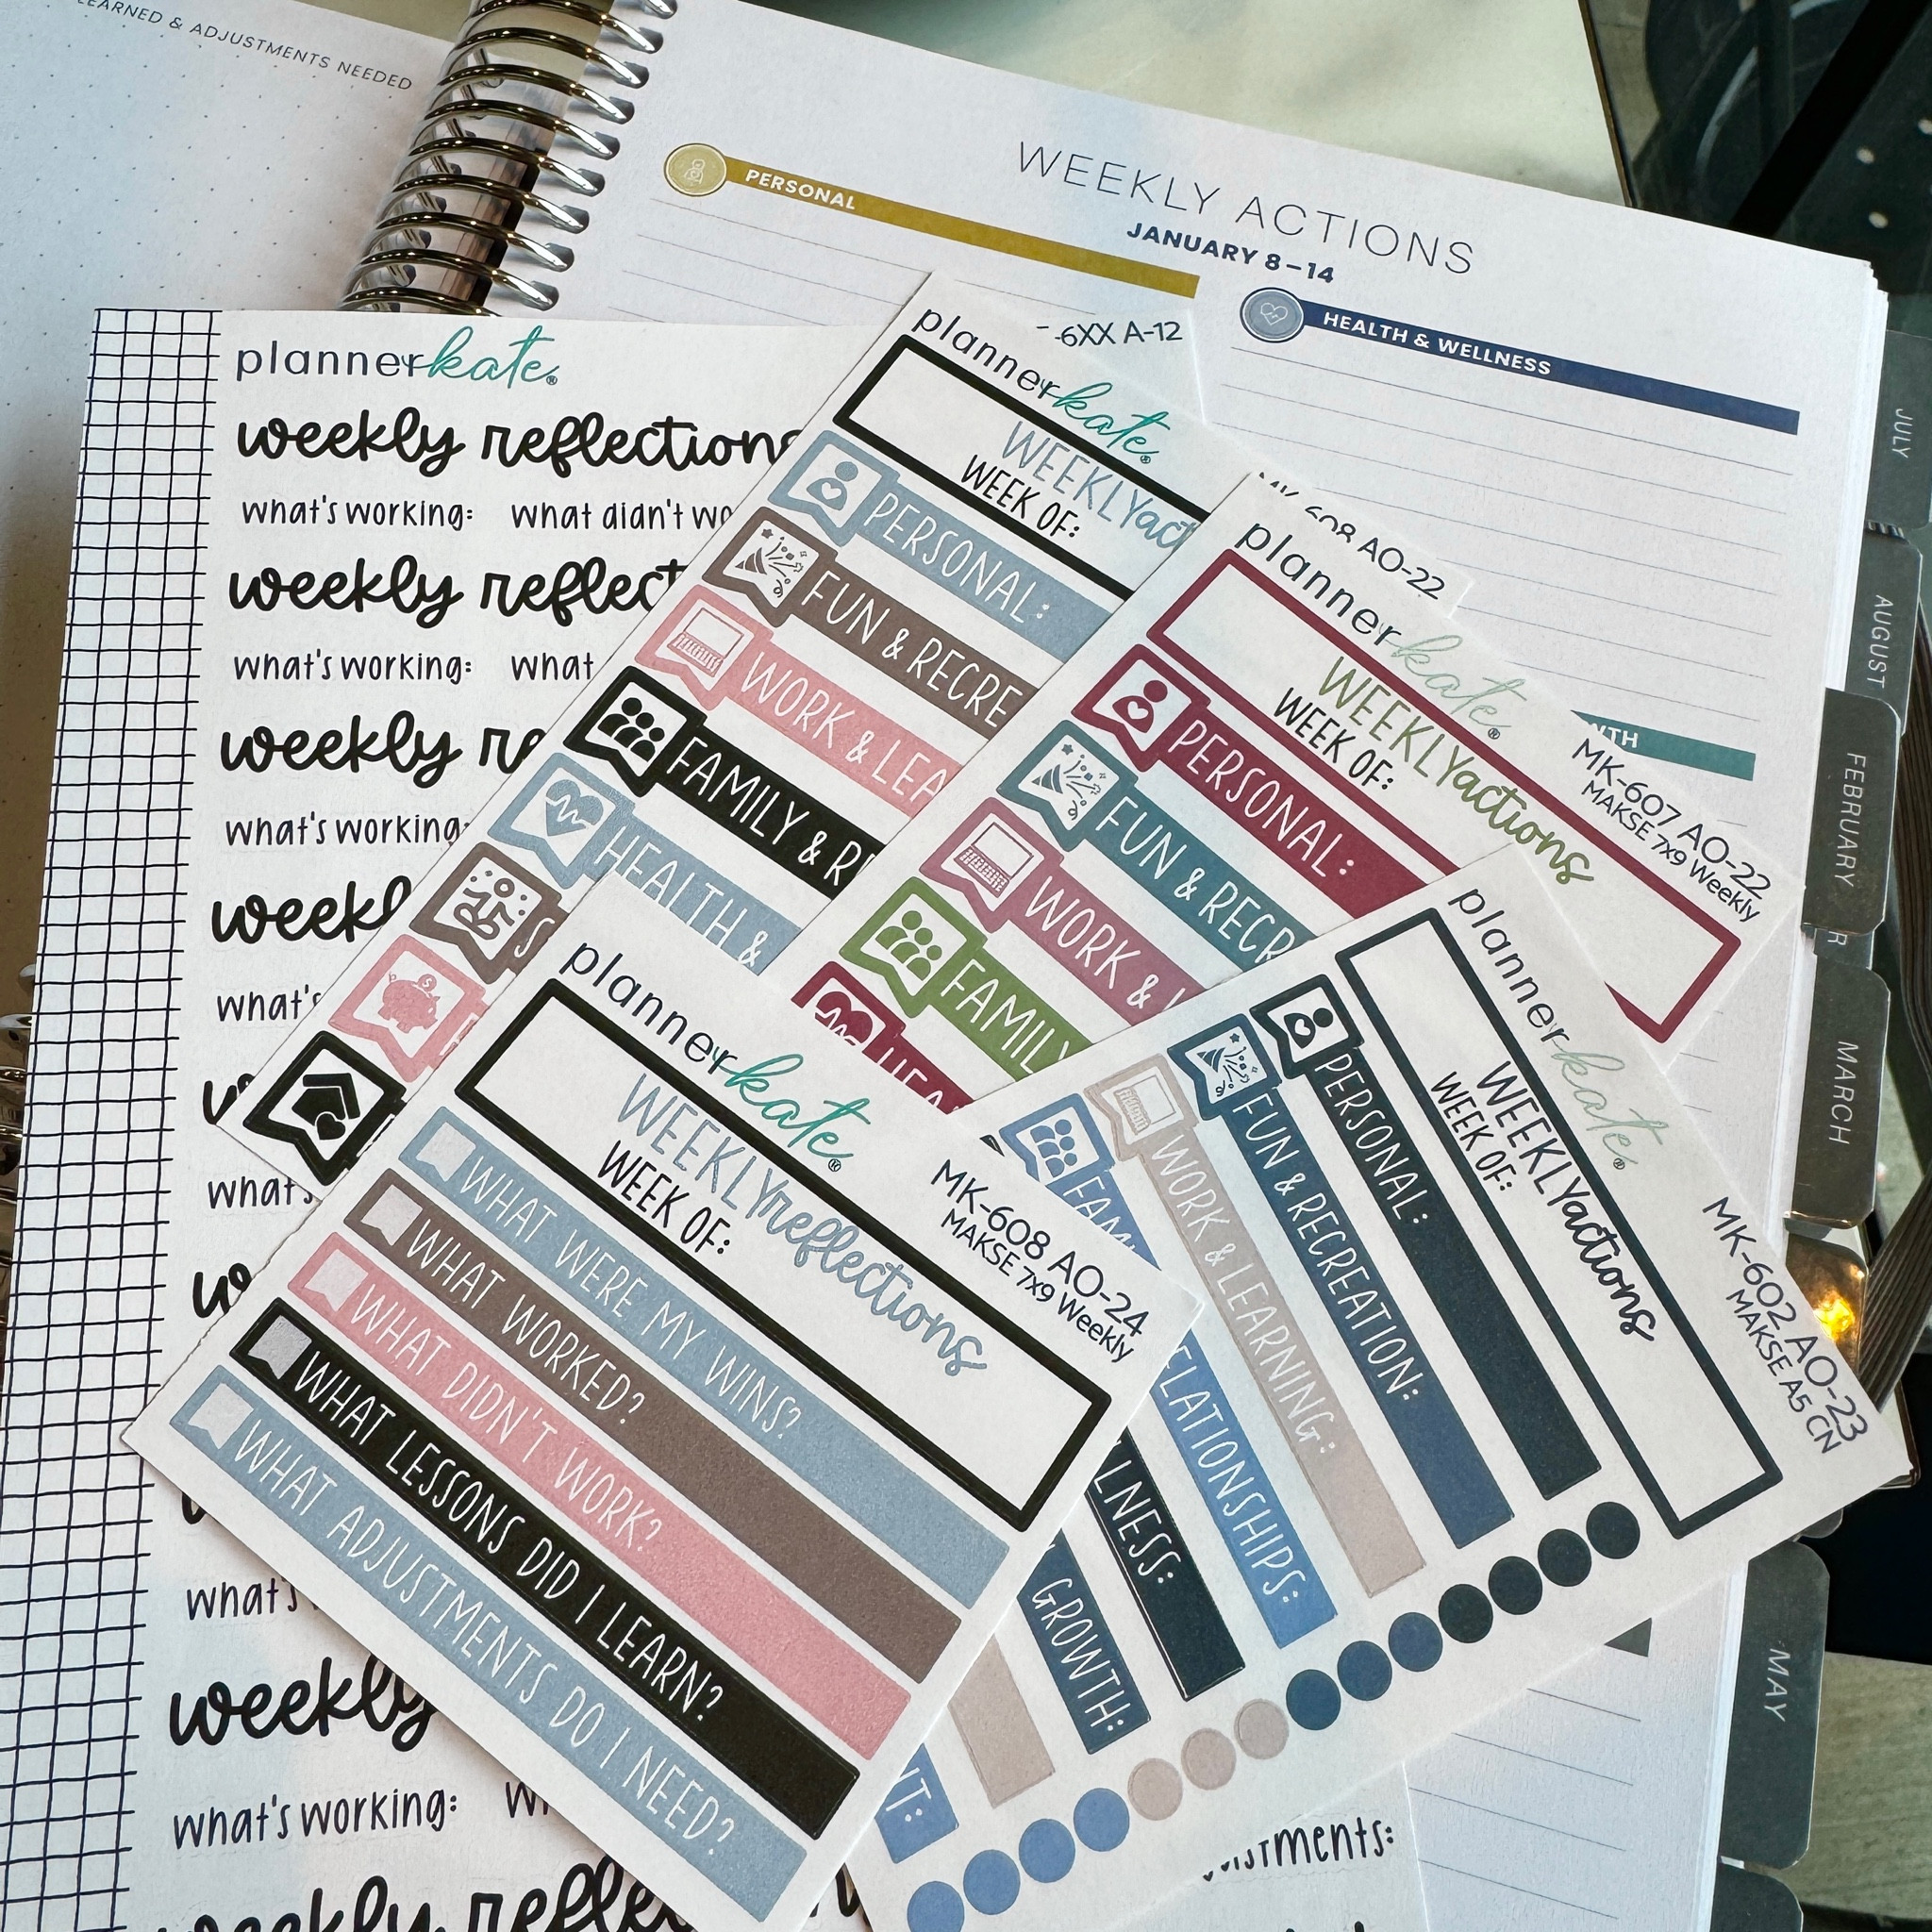 LEARNED & ADJUSTMENTS NEEDED
WEEKLY ACTIONS
JANUARY 8–14
PERSONAL
HEALTH & WELLNESS
JULY
AUGUST
FEBRUARY
MARCH
MAY
plannerkate®
weekly reflections
what's working: what didn't
weekly
what's working: what
weekly
what's working:
what's
what's
what's
weekly
what's working:
weekly
-6XX A-12
plannerkate®
WEEKLY
WEEK OF:
PERSONAL:
FUN & RECRE
WORK & LEA
FAMILY &
HEALTH &
608 AO-22
plannerkate®
WEEKLYactions
WEEK OF:
MK-607 AO-22
MAKSE 7x9 Weekly
PERSONAL:
FUN & RECR
WORK &
FAMILY
plannerkate®
WEEKLYactions
WEEK OF:
MK-602 AO-23
MAKSE A5 CN
PERSONAL:
FUN & RECREATION:
WORK & LEARNING:
FAM
ELATIONSHIPS:
LLNESS:
GROWTH:
plannerkate®
WEEKLYreflections
WEEK OF:
MK-608 AO-24
MAKSE 7x9 Weekly
WHAT WERE MY WINS?
WHAT WORKED?
WHAT DIDN'T WORK?
WHAT LESSONS DID I LEARN?
WHAT ADJUSTMENTS DO I NEED?